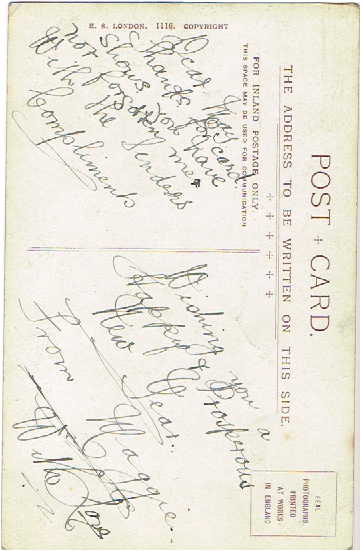 POST CARD.
THE ADDRESS TO BE WRITTEN ON THIS SIDE.
FOR INLAND POSTAGE ONLY.
THIS SPACE MAY BE USED FOR COMMUNICATION
REAL
PHOTOGRAPHS.
PRINTED
AT WORKS
IN ENGLAND
S. LONDON. 1116. COPYRIGHT
Dear
Thanks for card.
Shows you have
not forgotten me
With the Senders
Compliments
Wishing you a
Happy & Prosperous
New Year.
From Maggie.
With Love